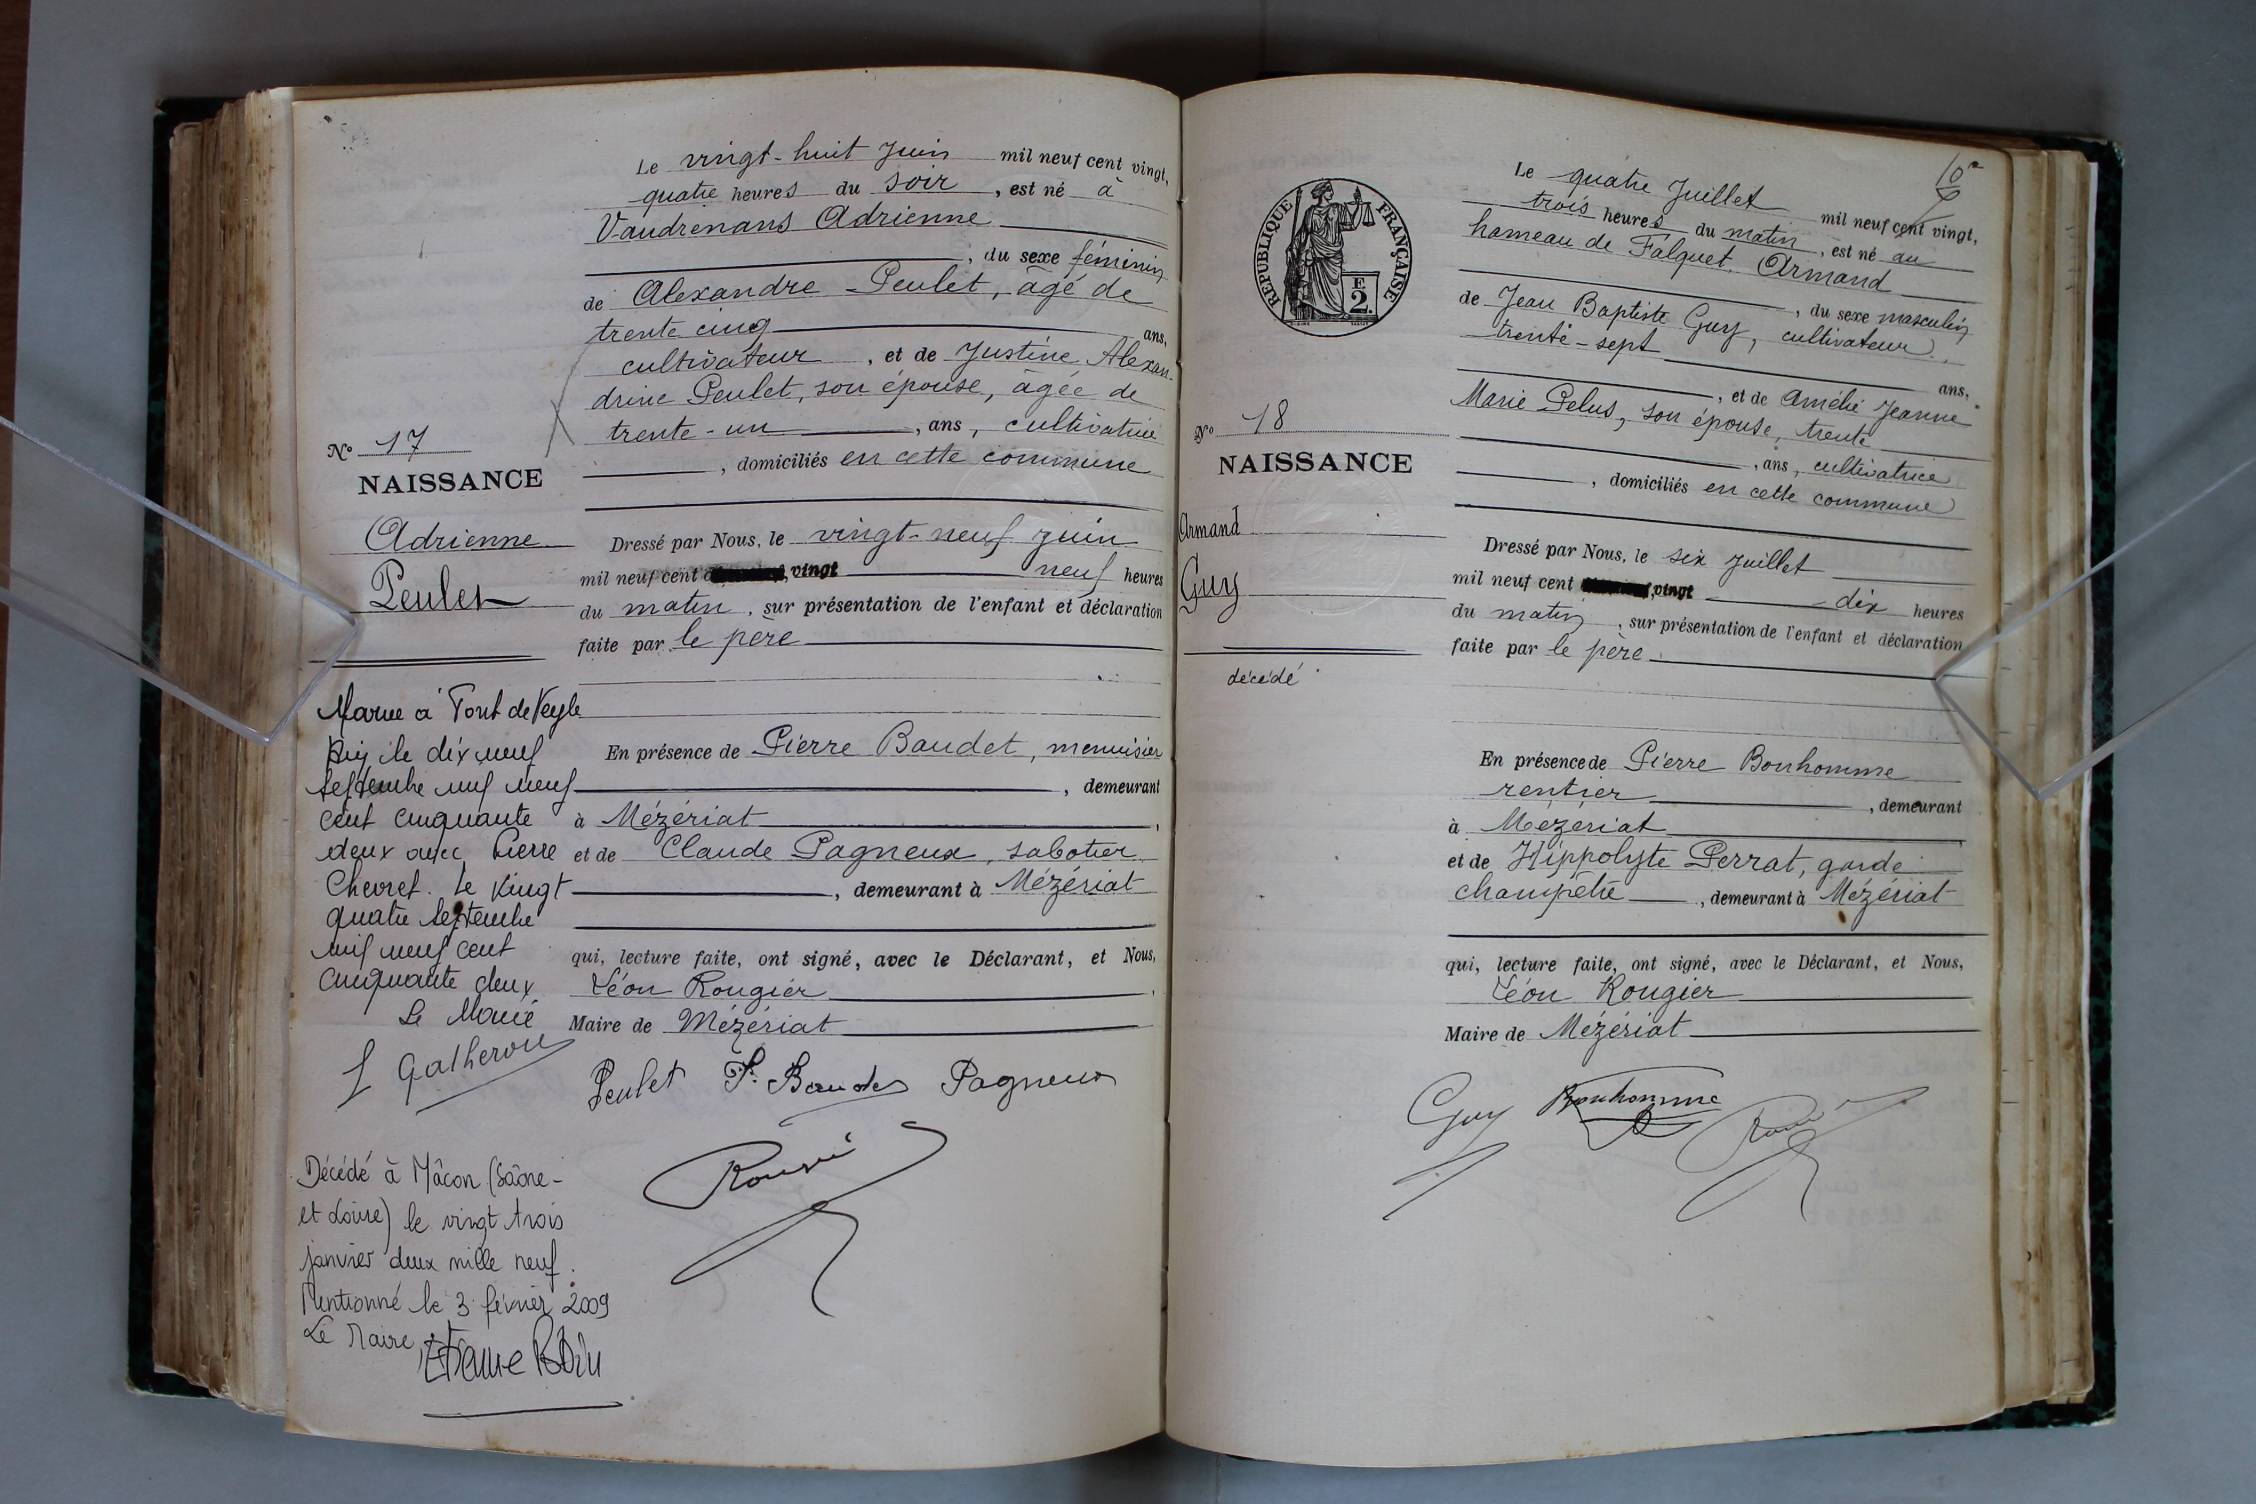 Le vingt-huit Juin mil neuf cent vingt,
quatre heures du soir, est né à
Vaudrenans Adrienne
, du sexe féminin
de Alexandre Peulet, âgé de
trente cinq ans,
cultivateur, et de Justine Alexan-
drine Peulet, son épouse, âgée de
trente-un, ans, cultivatrice
, domiciliés en cette commune
N° 17
NAISSANCE
Adrienne
Peulet
Dressé par Nous, le vingt-neuf juin
mil neuf cent vingt neuf heures
du matin, sur présentation de l'enfant et déclaration
faite par le père
En présence de Pierre Baudet, menuisier
, demeurant
à Mézériat,
et de Claude Pagneux, sabotier
, demeurant à Mézériat
qui, lecture faite, ont signé, avec le Déclarant, et Nous,
Léon Rougier,
Maire de Mézériat
Peulet P. Baudet Pagneux
Mariée à Pont de Veyle
le dix neuf
septembre mil neuf
cent cinquante
deux avec Pierre
Chevret. Le vingt
quatre septembre
mil neuf cent
cinquante deux
Le Maire
Décédé à Mâcon (Saône-
et Loire) le vingt trois
janvier deux mille neuf.
Mentionné le 3 février 2009
Le Maire,
RÉPUBLIQUE FRANÇAISE
2F
10
Le quatre Juillet mil neuf cent vingt,
trois heures du matin, est né au
hameau de Falquet Armand
, du sexe masculin
de Jean Baptiste Guy, cultivateur,
trente-sept ans,
, et de Amélie Jeanne
Marie Pelus, son épouse, trente
, ans, cultivatrice
, domiciliés en cette commune
N° 18
NAISSANCE
Armand
Guy
décédé
Dressé par Nous, le six Juillet
mil neuf cent vingt dix heures
du matin, sur présentation de l'enfant et déclaration
faite par le père
En présence de Pierre Bonhomme
rentier, demeurant
à Mézériat
et de Hippolyte Perrat, garde
champêtre, demeurant à Mézériat
qui, lecture faite, ont signé, avec le Déclarant, et Nous,
Léon Rougier
Maire de Mézériat
Guy Bonhomme